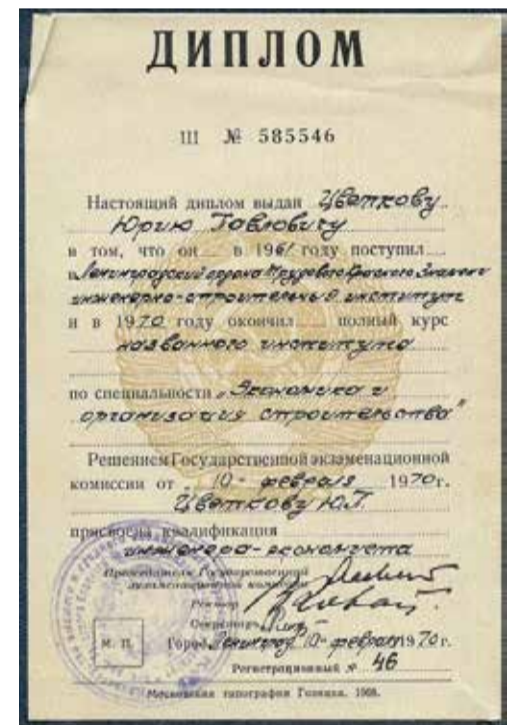 ДИПЛОМ
Ш № 585546
Настоящий диплом выдан Цветкову
Юрию Павловичу
в том, что он в 1961 году поступил
в Ленинградский ордена Трудового Красного Знамени
инженерно-строительный институт
и в 1970 году окончил полный курс
названного института
по специальности „Экономика и
организация строительства"
Решением Государственной экзаменационной
комиссии от 10 - февраля 1970г.
Цветкову Ю.П.
присвоена квалификация
инженера-экономиста
Председатель Государственной
экзаменационной комиссии
Ректор
Секретарь
М. П.
Город Ленинград 10 - февраля 1970г.
Регистрационный № 46
Московская типография Гознака. 1968.